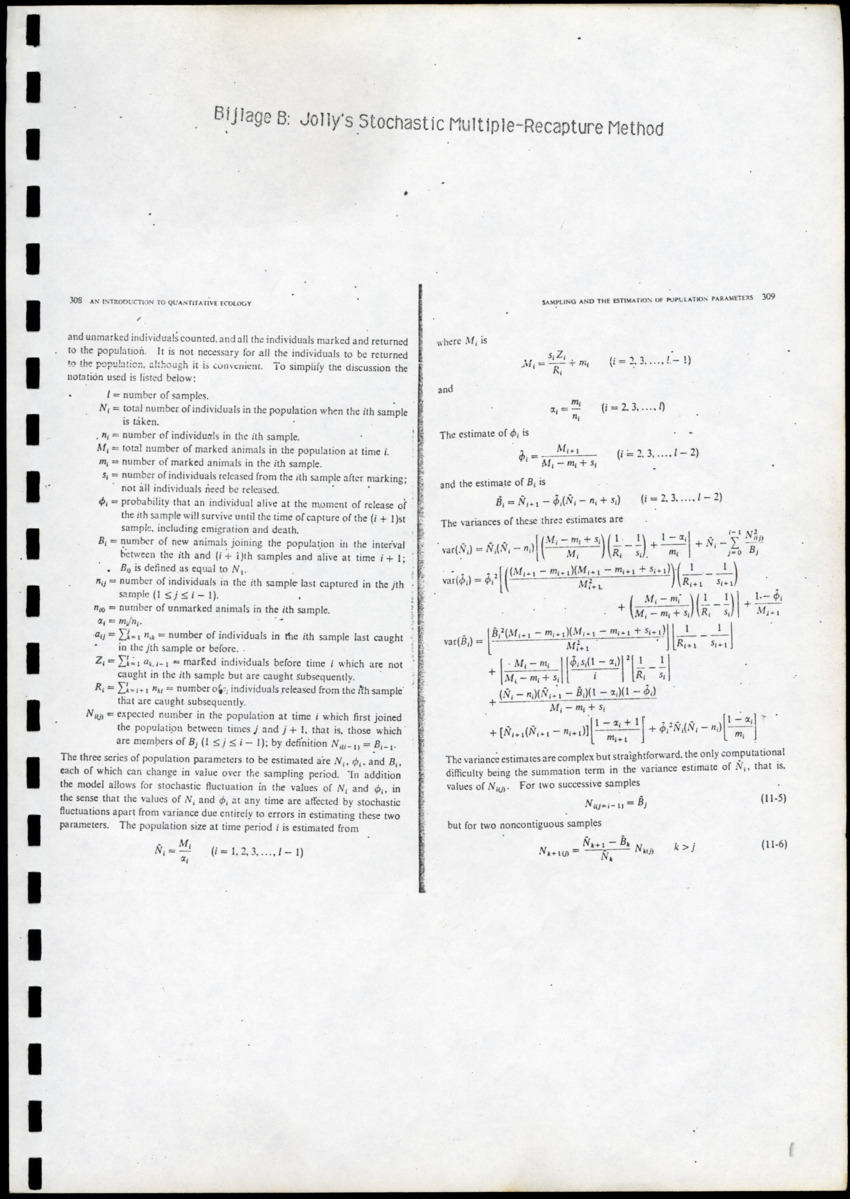 Bijlage B: Jolly's Stochastic Multiple-Recapture Method
308 AN INTRODUCTION TO QUANTITATIVE ECOLOGY
and unmarked individuals counted, and all the individuals marked and returned
to the population. It is not necessary for all the individuals to be returned
to the population, although it is convenient. To simplify the discussion the
notation used is listed below:
l = number of samples.
N_i = total number of individuals in the population when the ith sample
is taken.
n_i = number of individuals in the ith sample.
M_i = total number of marked animals in the population at time i.
m_i = number of marked animals in the ith sample.
s_i = number of individuals released from the ith sample after marking;
not all individuals need be released.
ϕ_i = probability that an individual alive at the moment of release of
the ith sample will survive until the time of capture of the (i + 1)st
sample, including emigration and death.
B_i = number of new animals joining the population in the interval
between the ith and (i + 1)th samples and alive at time i + 1;
B_0 is defined as equal to N_1.
n_ij = number of individuals in the ith sample last captured in the jth
sample (1 ≤ j ≤ i − 1).
n_i0 = number of unmarked animals in the ith sample.
α_i = m_i/n_i.
a_ij = ∑^j_k=1 n_ik = number of individuals in the ith sample last caught
in the jth sample or before.
Z_i = ∑ a_k,i−1 = marked individuals before time i which are not
caught in the ith sample but are caught subsequently.
R_i = ∑^l_k=i+1 n_ki = number of s_i individuals released from the ith sample
that are caught subsequently.
N_i(j) = expected number in the population at time i which first joined
the population between times j and j + 1, that is, those which
are members of B_j (1 ≤ j ≤ i − 1); by definition N_i(i−1) = B_i−1.
The three series of population parameters to be estimated are N_i, ϕ_i, and B_i,
each of which can change in value over the sampling period. In addition
the model allows for stochastic fluctuation in the values of N_i and ϕ_i, in
the sense that the values of N_i and ϕ_i at any time are affected by stochastic
fluctuations apart from variance due entirely to errors in estimating these two
parameters. The population size at time period i is estimated from
N̂_i = M_i / α_i (i = 1, 2, 3, ..., l − 1)
SAMPLING AND THE ESTIMATION OF POPULATION PARAMETERS 309
where M_i is
M_i = s_i Z_i / R_i + m_i (i = 2, 3, ..., l − 1)
and
α_i = m_i / n_i (i = 2, 3, ..., l)
The estimate of ϕ_i is
ϕ̂_i = M_i+1 / (M_i − m_i + s_i) (i = 2, 3, ..., l − 2)
and the estimate of B_i is
B̂_i = N̂_i+1 − ϕ̂_i(N̂_i − n_i + s_i) (i = 2, 3, ..., l − 2)
The variances of these three estimates are
var(N̂_i) = N̂_i(N̂_i − n_i)[((M_i − m_i + s_i) / M_i)(1/R_i − 1/s_i) + (1 − α_i)/m_i] + N̂_i − ∑^i−1_j=0 N²_i(j) / B_j
var(ϕ̂_i) = ϕ̂_i²[((M_i+1 − m_i+1)(M_i+1 − m_i+1 + s_i+1) / M²_i+1)(1/R_i+1 − 1/s_i+1)
+ ((M_i − m_i) / (M_i − m_i + s_i))(1/R_i − 1/s_i)] + (1 − ϕ̂_i) / M_i+1
var(B̂_i) = [B̂_i²(M_i+1 − m_i+1)(M_i+1 − m_i+1 + s_i+1) / M²_i+1][1/R_i+1 − 1/s_i+1]
+ [(M_i − m_i) / (M_i − m_i + s_i)][ϕ̂_i s_i(1 − α_i) / i]²[1/R_i − 1/s_i]
+ (N̂_i − n_i)(N̂_i+1 − B̂_i)(1 − α_i)(1 − ϕ̂_i) / (M_i − m_i + s_i)
+ [N̂_i+1(N̂_i+1 − n_i+1)][(1 − α_i + 1) / m_i+1] + ϕ̂_i²N̂_i(N̂_i − n_i)[(1 − α_i) / m_i]
The variance estimates are complex but straightforward, the only computational
difficulty being the summation term in the variance estimate of N̂_i, that is,
values of N_i(j). For two successive samples
N_i(j=i−1) = B̂_j (11-5)
but for two noncontiguous samples
N_k+1(j) = ((N̂_k+1 − B̂_k) / N̂_k) N_k(j) k > j (11-6)